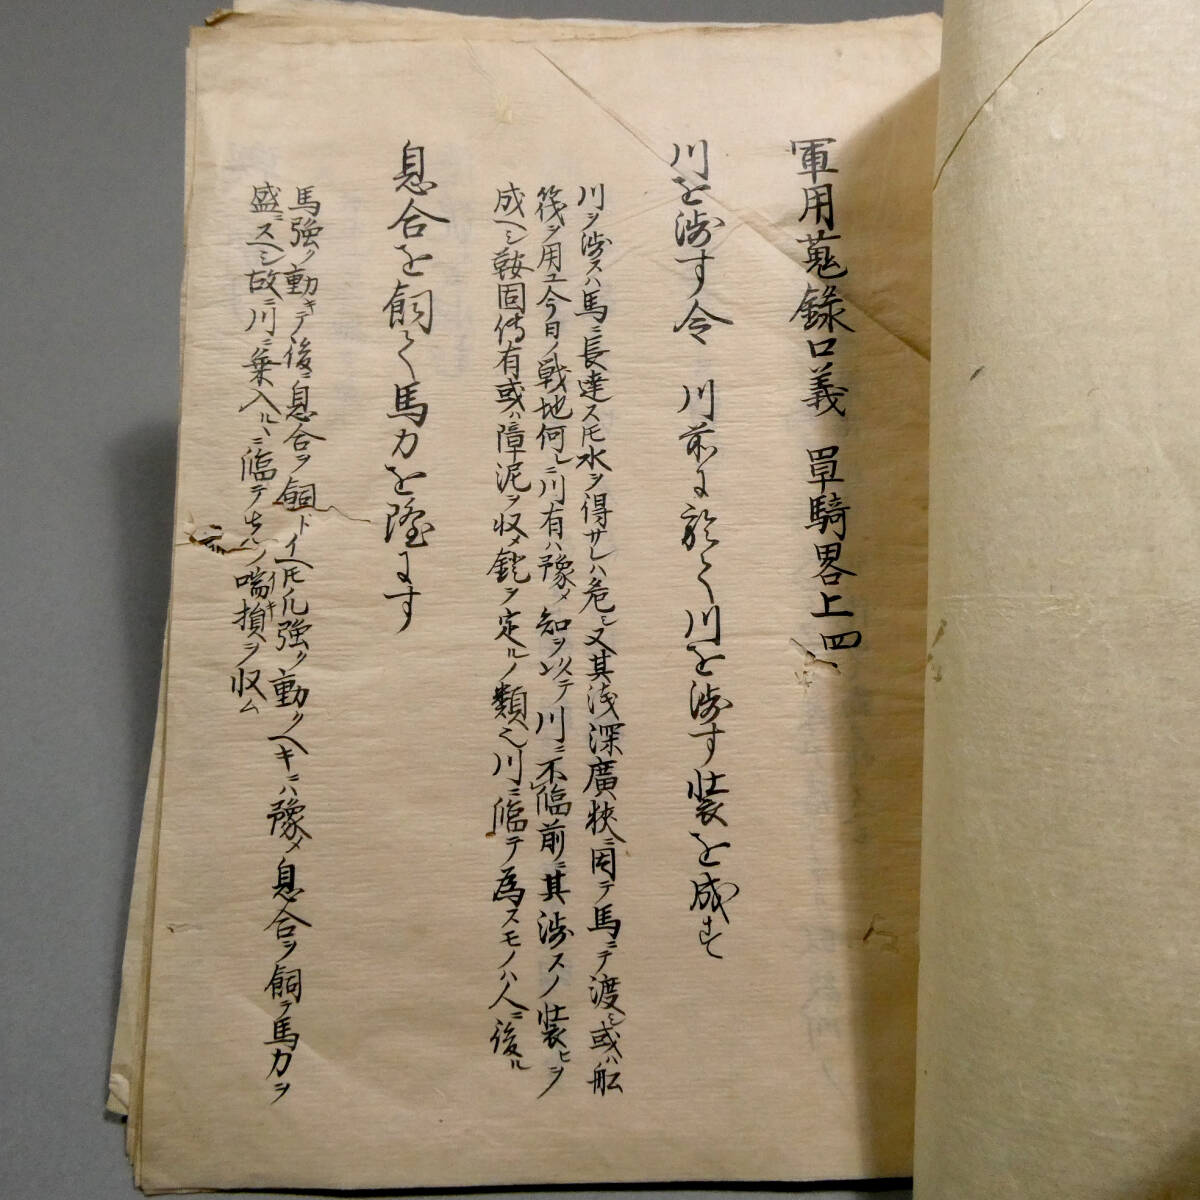 軍用蒐錄口義 單騎畧上四
川を渉す令 川前に於て川を渉す裝を成す
川ヲ渉スハ馬ニ長達ス𪜈水ヲ得サレハ危シ又其浅深廣狹ニ因テ馬ニテ渡シ或ハ舩
筏ヲ用ユ今日ノ戰地何レニ川有ハ豫メ知ヲ以テ川ニ不臨前ニ其渉スノ裝ヒヲ
成ヘシ鞍固傳有或ハ障泥ヲ收メ鐙ヲ定ルノ類也川ニ臨テ為スモノハ人ニ後ル
息合を飼て馬力を隆にす
馬強ク動キテ後ニ息合ヲ飼ドイヘ𪜈強ク動クヘキニハ豫メ息合ヲ飼テ馬力ヲ
盛ニスヘシ故ニ川ニ乗入ルヽニ臨テ先ノ喘イキ損ヲ收ム